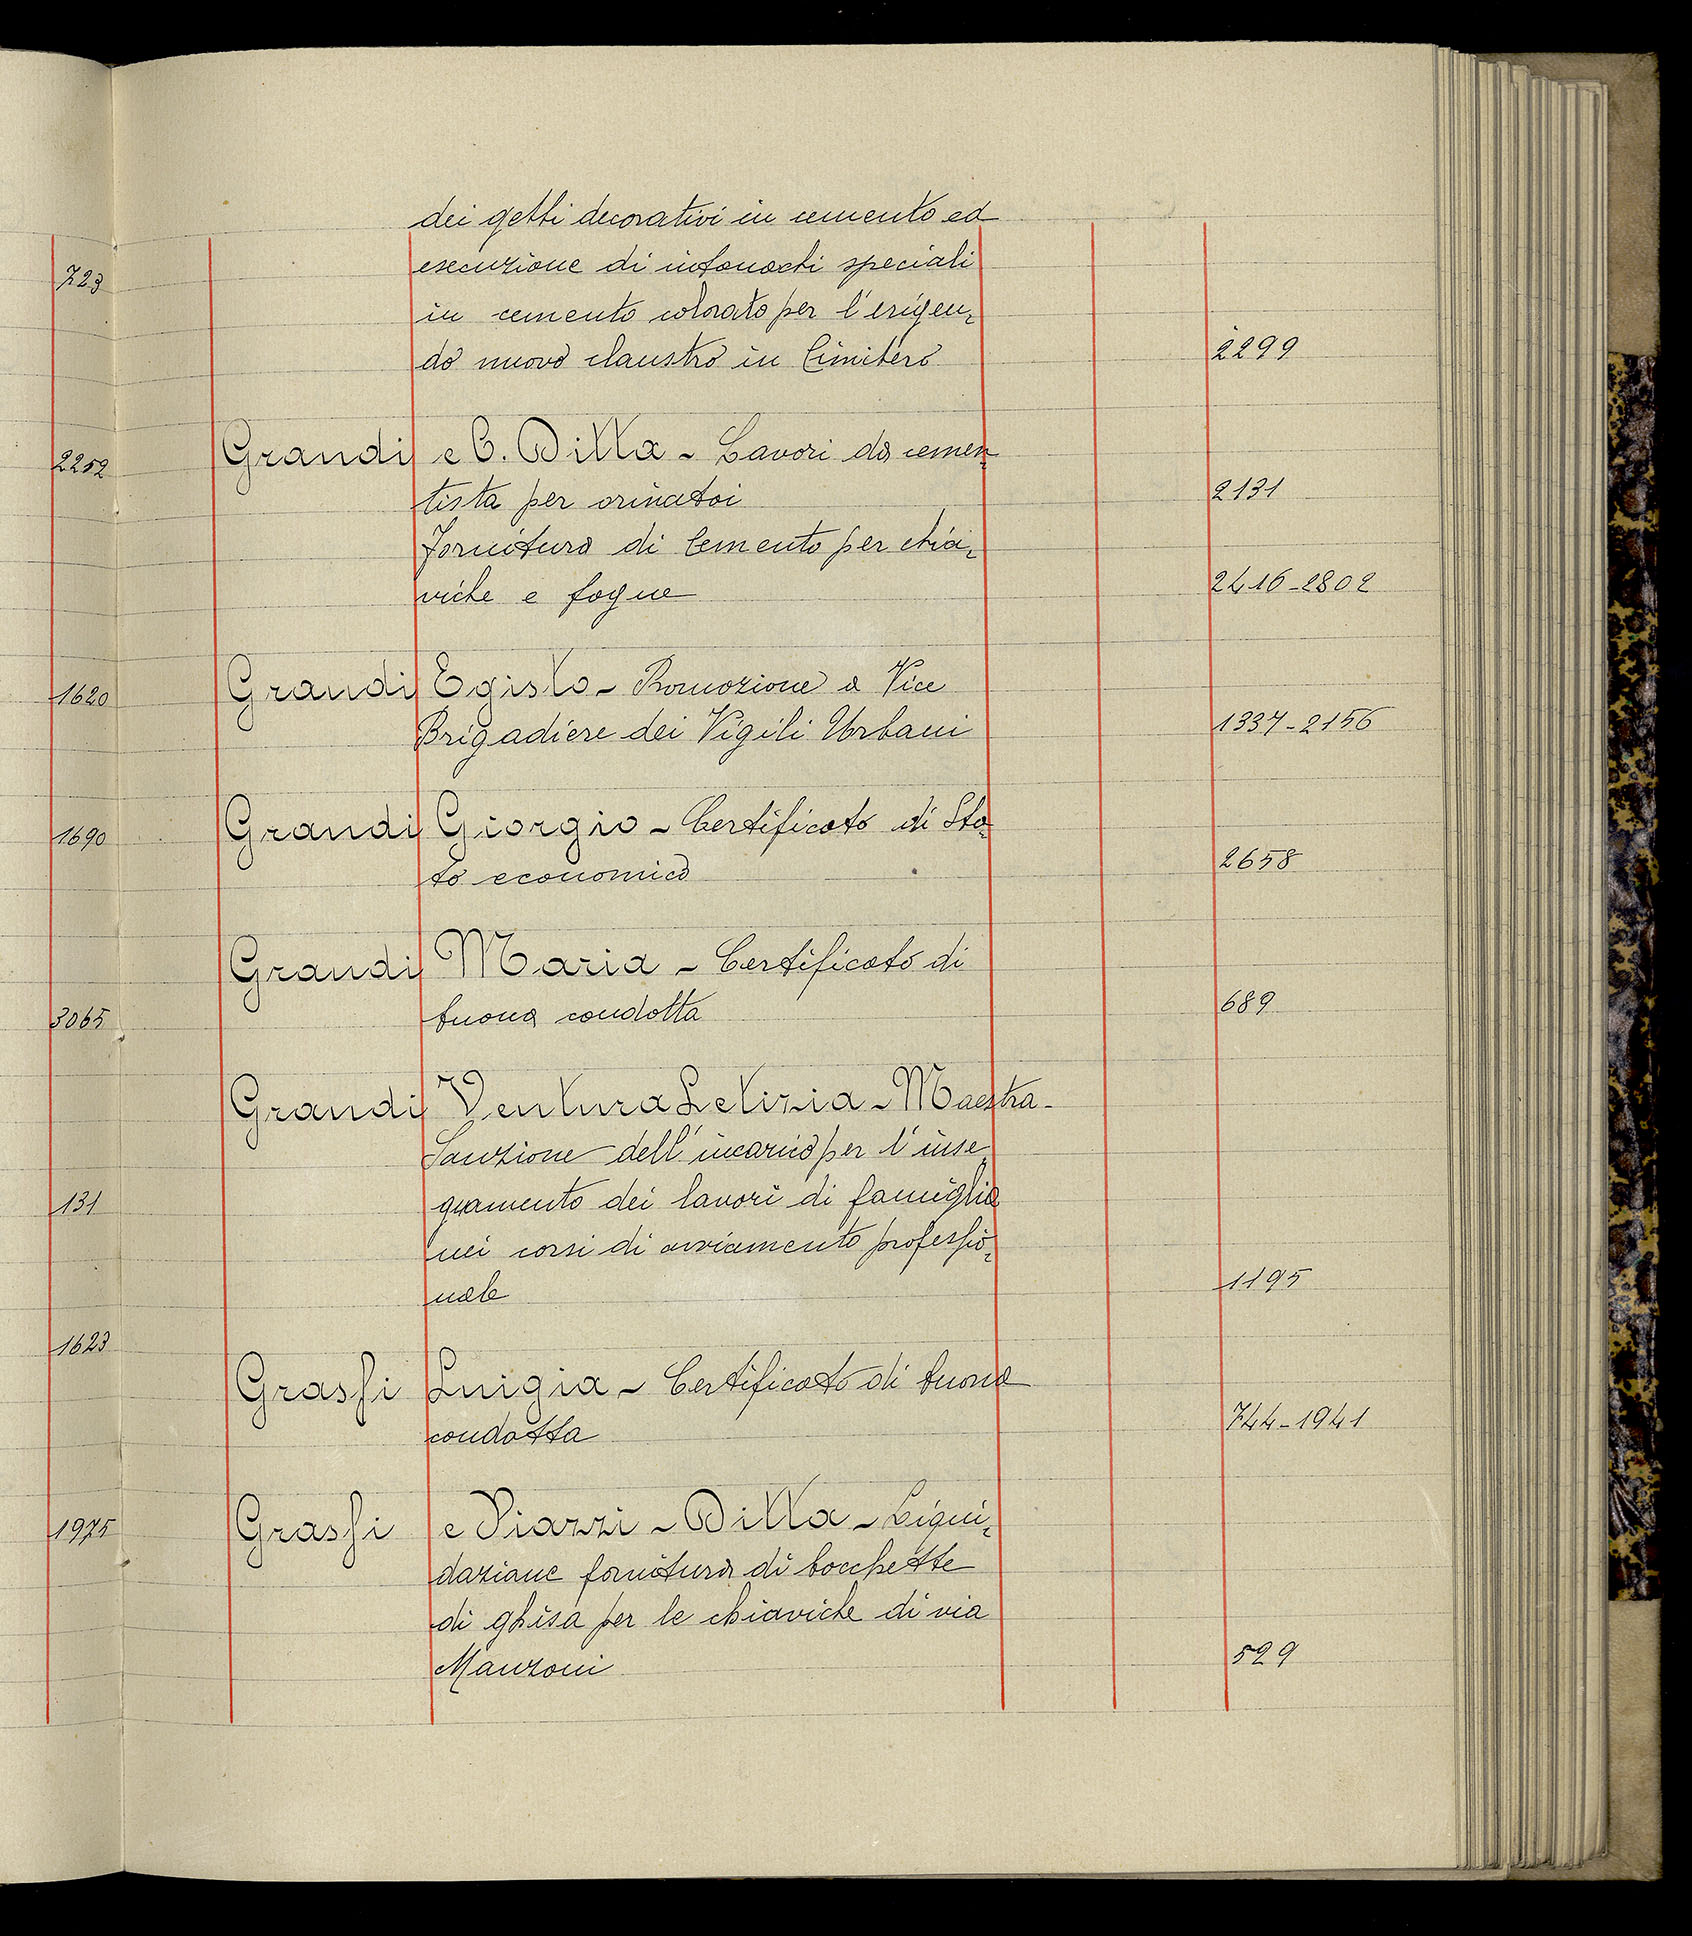 723
2252
1620
1690
3065
131
1623
1975
dei getti decorativi in cemento ed
esecuzione di intonachi speciali
in cemento colorato per l'erigen,
do nuovo claustro in Cimitero 2299
Grandi e C. Ditta - Lavori da cemen,
tista per orinatoi 2131
Fornitura di Cemento per chia,
viche e fogne 2416-2802
Grandi Egisto - Promozione a Vice
Brigadiere dei Vigili Urbani 1337-2156
Grandi Giorgio - Certificato di Sta,
to economico 2658
Grandi Maria - Certificato di
buona condotta 689
Grandi Ventura Letizia - Maestra -
Sanzione dell'incarico per l'inse,
gnamento dei lavori di famiglia
nei corsi di avviamento professio,
nale 1195
Grassi Luigia - Certificato di buona
condotta 744-1941
Grassi e Piazzi - Ditta - Liqui,
dazione fornitura di bocchette
di ghisa per le chiaviche di via
Manzoni 529